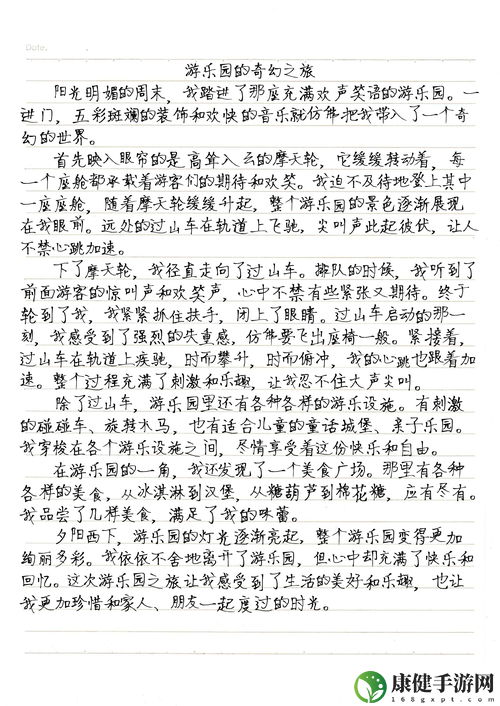 Date.
游乐园的奇幻之旅
阳光明媚的周末，我踏进了那座充满欢声笑语的游乐园。一
进门，五彩斑斓的装饰和欢快的音乐就仿佛把我带入了一个奇
幻的世界。
首先映入眼帘的是高耸入云的摩天轮，它缓缓转动着，每
一个座舱都承载着游客们的期待和欢笑。我迫不及待地登上其中
一座座舱，随着摩天轮缓缓升起，整个游乐园的景色逐渐展现
在我眼前。远处的过山车在轨道上飞驰，尖叫声此起彼伏，让人
不禁心跳加速。
下了摩天轮，我径直走向了过山车。排队的时候，我听到了
前面游客的惊叫声和欢笑声，心中不禁有些紧张又期待。终于
轮到了我，我紧紧抓住扶手，闭上了眼睛。过山车启动的那一
刻，我感受到了强烈的失重感，仿佛要飞出座椅一般。紧接着，
过山车在轨道上疾驰，时而攀升，时而俯冲，我的心跳也跟着加
速。整个过程充满了刺激和乐趣，让我忍不住大声尖叫。
除了过山车，游乐园里还有各种各样的游乐设施。有刺激
的碰碰车、旋转木马，也有适合儿童的童话城堡、亲子乐园。
我穿梭在各个游乐设施之间，尽情享受着这份快乐和自由。
在游乐园的一角，我还发现了一个美食广场。那里有各种
各样的美食，从冰淇淋到汉堡，从糖葫芦到棉花糖，应有尽有。
我品尝了几样美食，满足了我的味蕾。
夕阳西下，游乐园的灯光逐渐亮起，整个游乐园变得更加
绚丽多彩。我依依不舍地离开了游乐园，但心中却充满了快乐和
回忆。这次游乐园之旅让我感受到了生活的美好和乐趣，也让
我更加珍惜和家人、朋友一起度过的时光。
康健手游网
168gxpt.com